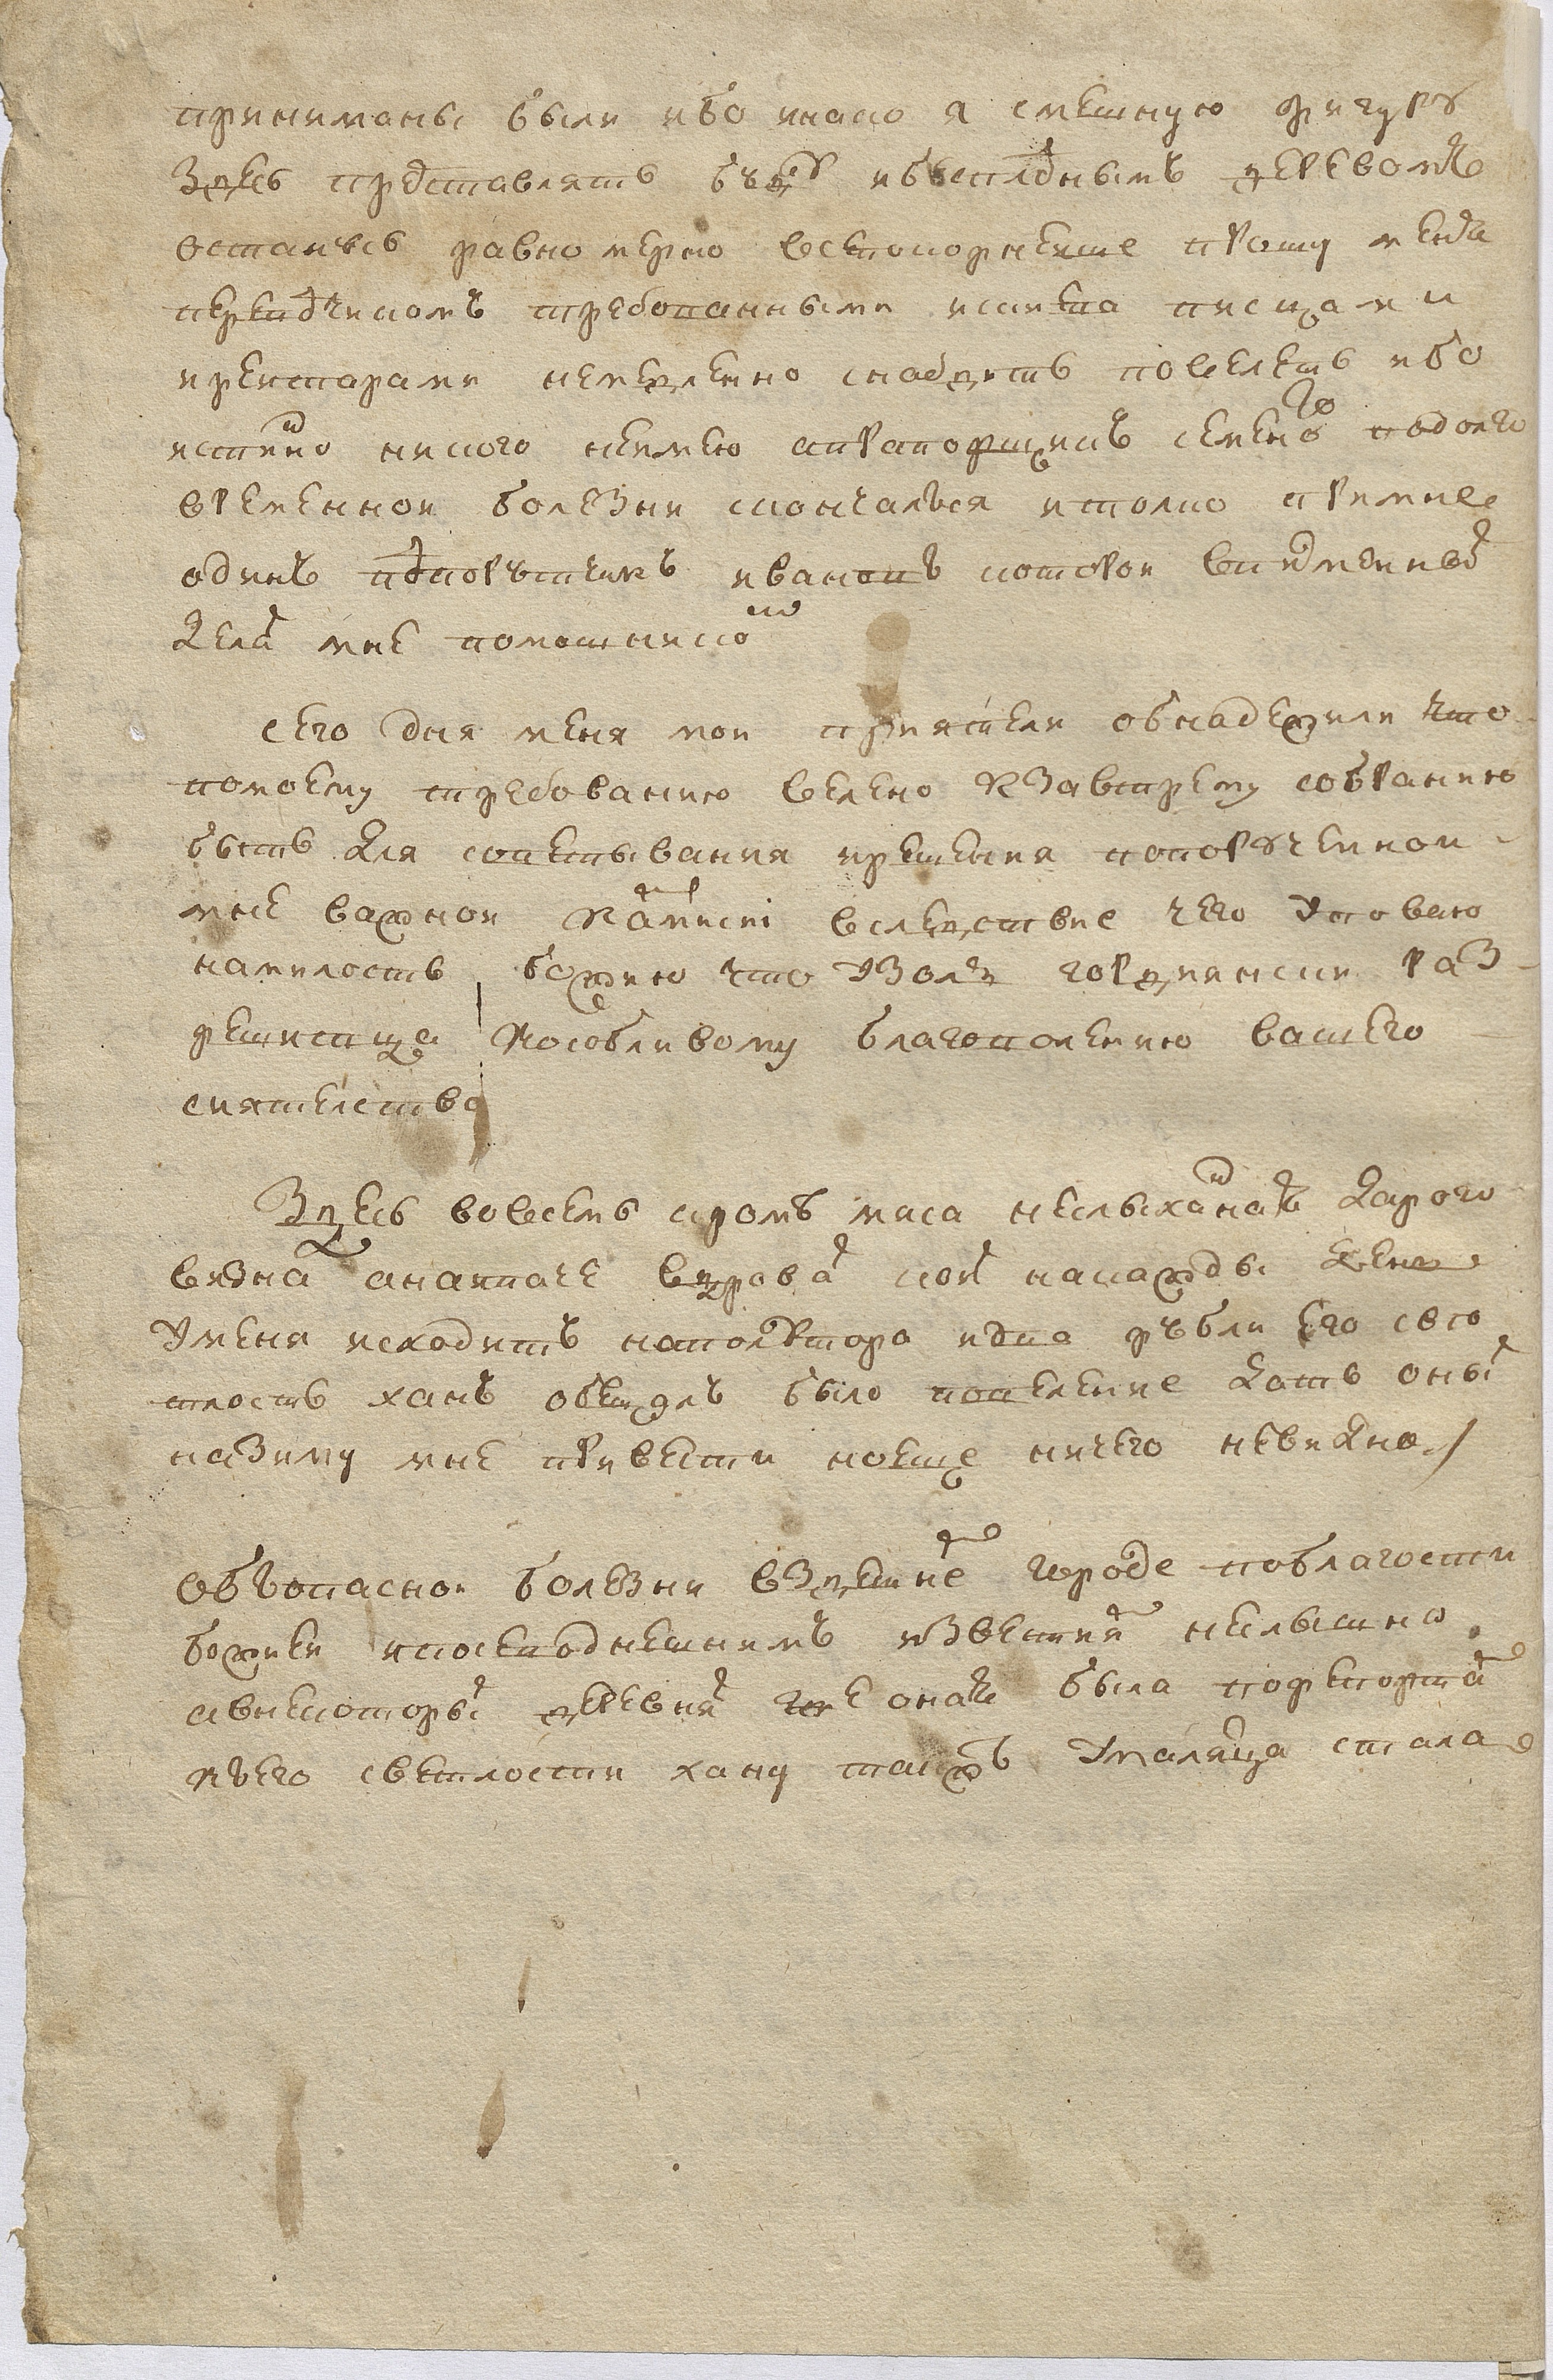 приниманы были ибо инако я смешную фигуру
здесь представлять буду и бесплоднымъ деревомъ
остаюсь равномерно всепокорнейше прошу меня
переводчикомъ требованными писцами и
и рейтарами немедленно снабдить повелеть ибо
истинно никого не имею а прапорщикъ семеновъ подолго
временной болезни скончался и только при мне
одинъ подпорутчикъ ивановъ которои в писменныхъ
делахъ мне помощникомъ
сего дня меня мои приятели обнадежили что
по моему требованию велено к завтрему собранию
быть для советывания и решения о порученнои
мне важнои камисиі вследствие чего уповаю
на милость божию что узолъ гордиянски раз
решитца к особливому благоволению вашего
сиятелства
Здесь во всемъ кромъ мяса неслыханная дорого
визна а наипаче в дровахъ коихъ на каждый день
у меня исходитъ на полтора рубли его свет
тлость ханъ обещалъ было повеление дать оныхъ
на зиму мне привести но еще ничего невидно /
Объ опаснои болезни в здешнемъ городе по благости
божиеи и по сегоднешнимъ известиямъ неслышно
а в некоторыхъ деревняхъ где оная была по репортамъ
къ его светлости хану такожъ умалятца стала